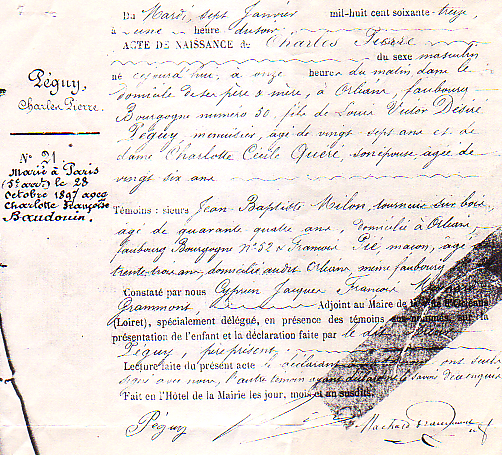 Péguy,
Charles Pierre.
N° 21
Marié à Paris
(5e arrt) le 28
Octobre 1897 avec
Charlotte Françoise
Baudouin.
Du Mardi, sept Janvier mil-huit cent soixante-treize,
à une heure du soir.
ACTE DE NAISSANCE de Charles Pierre
du sexe masculin
né cejourd'hui, à onze heures du matin dans le
domicile de ses père & mère, à Orléans, faubourg
Bourgogne numéro 50, fils de Louis Victor Désiré
Péguy, menuisier, âgé de vingt sept ans et de
dame Charlotte Cécile Quéré, son épouse, âgée de
vingt six ans
Témoins : sieurs Jean-Baptiste Milon, tourneur sur bois
âgé de quarante quatre ans, domicilié à Orléans,
faubourg Bourgogne N° 52 & François Pie maçon, âgé
trente trois ans, domicilié audit Orléans, même faubourg
Constaté par nous Cyprien Jacques François
Grammont Adjoint au Maire de la Ville d'Orléans
(Loiret), spécialement délégué, en présence des témoins sus-nommés, sur la
présentation de l'enfant et la déclaration faite par le dit
Péguy, père présent,
Lecture faite du présent acte
signé avec nous, l'autre témoin ayant déclaré ne savoir
Fait en l'Hôtel de la Mairie les jour, mois et an susdits.
Péguy